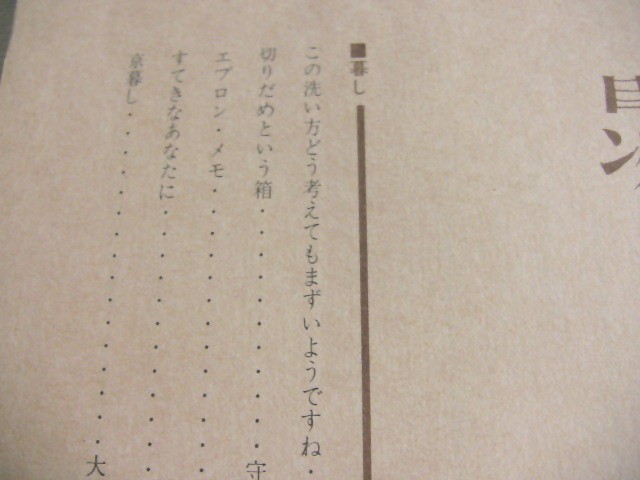 目次
■暮し
この洗い方どう考えてもまずいようですね・
切りだめという箱・・・・・・・・・・守
エプロン・メモ・・・・・・・・・・・・
すてきなあなたに・・・・・・・・・・・
京暮し・・・・・・・・・・・・・・・・大